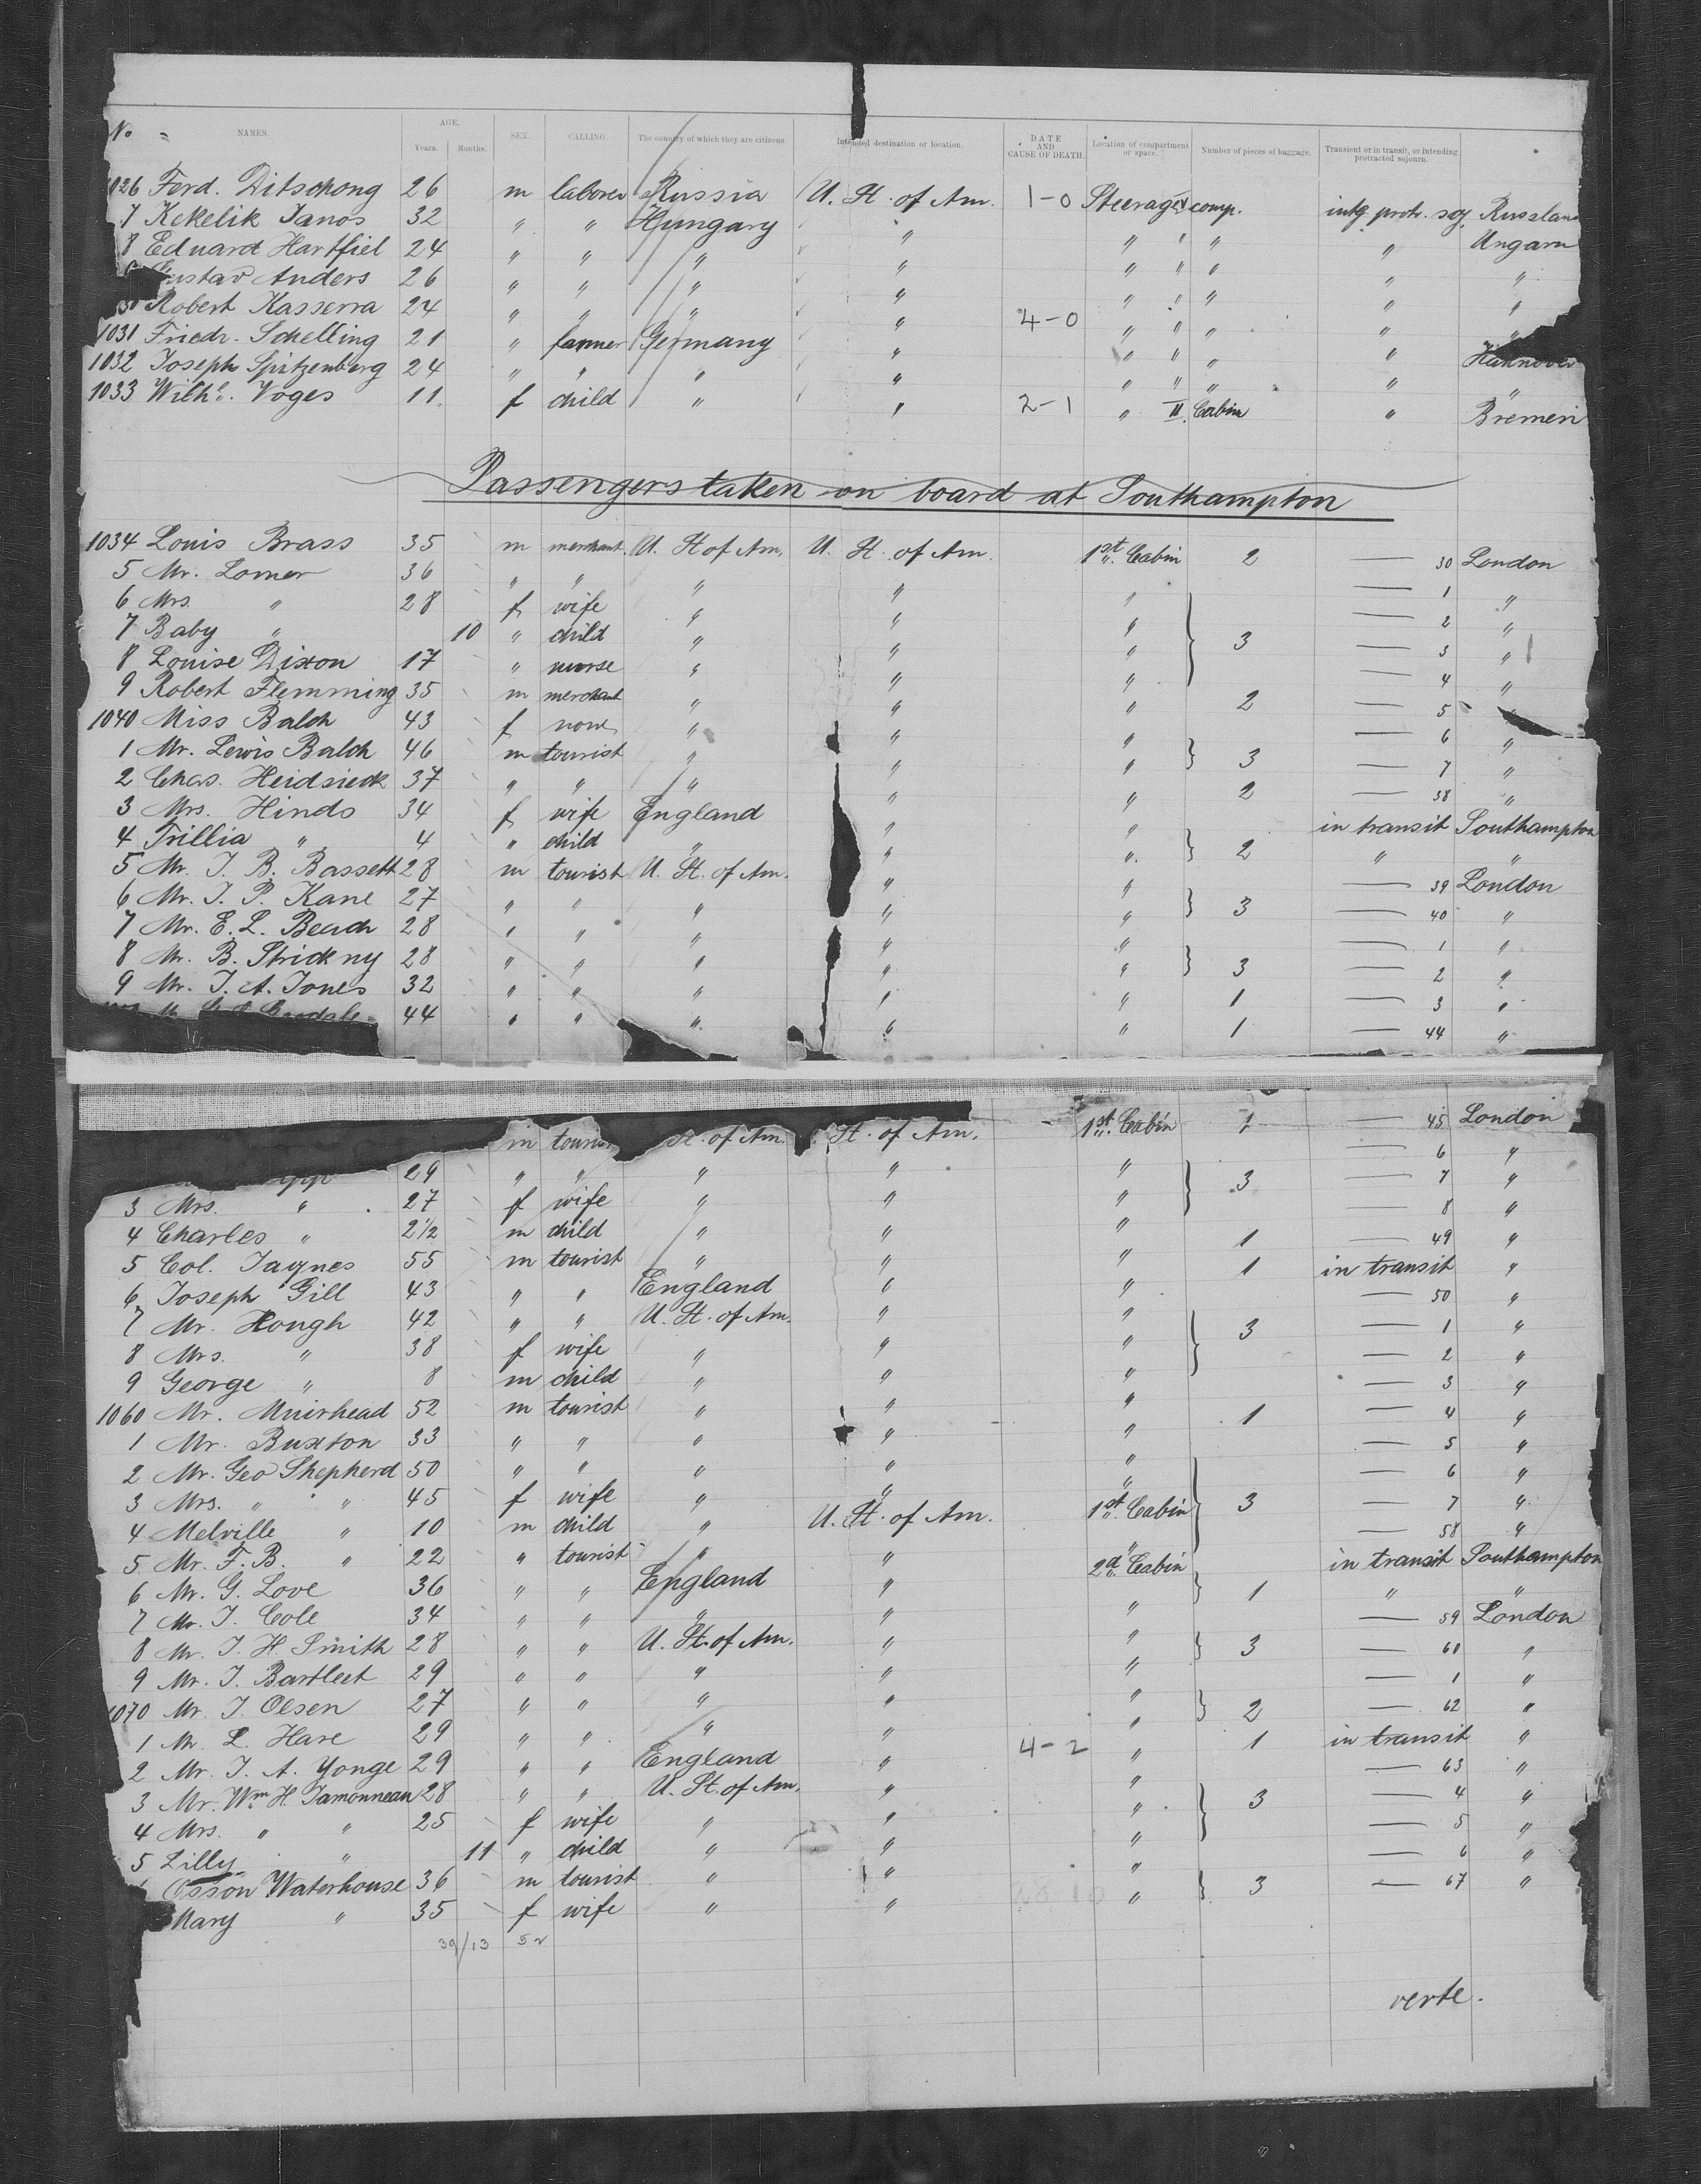 No. NAMES. AGE. Years. Months. SEX. CALLING. The country of which they are citizens. Intended destination or location. DATE AND CAUSE OF DEATH. Location of compartment or space. Number of pieces of baggage. Transient or in transit, or intending protracted sojourn.
1026 Ferd. Ditschong 26 m laborer Russia U. St. of Am. 1-0 Steerage comp. intg protr. soj. Russland
7 Kekelik Janos 32 " " Hungary " " " " " Ungarn
8 Eduard Hartfiel 24 " " " " " " " " "
Gustav Anders 26 " " " " " " " " "
30 Robert Kasserra 24 " " " " 4-0 " " " " "
1031 Friedr. Schelling 21 " farmer Germany " " " " " Hannover
1032 Joseph Spitzenberg 24 " " " " " " " " "
1033 Wilhe. Voges 11 f child " " 2-1 " II. Cabin " Bremen
Passengers taken on board at Southampton
1034 Louis Brass 35 m merchant U. St of Am. U. St. of Am. 1st Cabin 2 — 30 London
5 Mr. Lorner 36 " " " " " — 1 "
6 Mrs. " 28 f wife " " " — 2 "
7 Baby " 10 " child " " " 3 — 3 "
8 Louise Dixon 17 " nurse " " " — 4 "
9 Robert Flemming 35 m merchant " " " 2 — 5 "
1040 Miss Balch 43 f none " " " — 6 "
1 Mr. Lewis Balch 46 m tourist " " " 3 — 7 "
2 Chas. Heidsieck 37 " " " " " 2 — 38 "
3 Mrs. Hinds 34 f wife England " " in transit Southampton
4 Trillia " 4 " child " " " 2 " "
5 Mr. J. B. Bassett 28 m tourist U. St. of Am. " " — 39 London
6 Mr. J. P. Kane 27 " " " " " 3 — 40 "
7 Mr. E. L. Beach 28 " " " " " — 1 "
8 Mr. B. Strickny 28 " " " " " 3 — 2 "
9 Mr. J. A. Jones 32 " " " " " 1 — 3 "
44 " " " " " 1 — 44 "
m tourist St. of Am. St. of Am. 1st Cabin 1 — 45 London
29 " " " " " — 6 "
3 Mrs. " 27 f wife " " " 3 — 7 "
4 Charles " 2½ m child " " " — 8 "
5 Col. Jaynes 55 m tourist " " " 1 — 49 "
6 Joseph Gill 43 " " England " " 1 in transit "
7 Mr. Hough 42 " " U. St. of Am. " " — 50 "
8 Mrs. " 38 f wife " " " 3 — 1 "
9 George " 8 m child " " " — 2 "
1060 Mr. Muirhead 52 m tourist " " " — 3 "
1 Mr. Buxton 33 " " " " " 1 — 4 "
2 Mr. Geo Shepherd 50 " " " " " — 5 "
3 Mrs. " " 45 f wife " " " — 6 "
4 Melville " 10 m child " U. St. of Am. 1st Cabin 3 — 7 "
5 Mr. F. B. " 22 " tourist " " " — 58 "
6 Mr. G. Love 36 " " England " 2d Cabin in transit Southampton
7 Mr. J. Cole 34 " " " " " 1 " "
8 Mr. J. H Smith 28 " " U. St. of Am. " " — 59 London
9 Mr. J. Bartleet 29 " " " " " 3 — 60 "
1070 Mr. J. Olsen 27 " " " " " — 1 "
1 Mr. L. Hare 29 " " " " " 2 — 62 "
2 Mr. J. A. Yonge 29 " " England " 4-2 " 1 in transit "
3 Mr. Wm. H. Jamonneau 28 " " U. St. of Am. " " — 63 "
4 Mrs. " " 25 f wife " " " 3 — 4 "
5 Lilly " 11 " child " " " — 5 "
Osson Waterhouse 36 m tourist " " " — 6 "
Mary " 35 f wife " " " 3 — 67 "
39/13 52
verte.